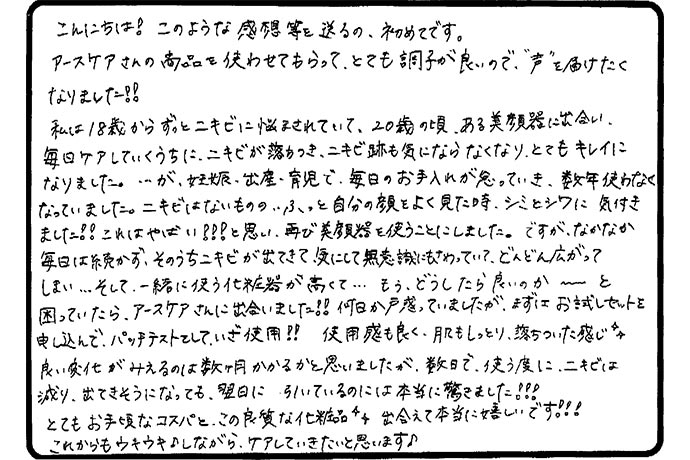 こんにちは！このような感想等を送るの、初めてです。
アースケアさんの商品を使わせてもらって、とても調子が良いので、"声"を届けたく
なりました!!
私は18歳からずっとニキビに悩まされていて、20歳の頃、ある美顔器に出会い、
毎日ケアしていくうちに、ニキビが落ちつき、ニキビ跡も気にならなくなり、とてもキレイに
なりました。…が、妊娠・出産・育児で、毎日のお手入れが怠っていき、数年使わなく
なっていました。ニキビはないものの…ふっと自分の顔をよく見た時、シミとシワに気付き
ました!!これはやばい!!!と思い、再び美顔器を使うことにしました。ですが、なかなか
毎日は続かず、そのうちニキビが出てきて、気にして無意識にもさわっていて、どんどん広がって
しまい…そして、一緒に使う化粧器が高くて…もう、どうしたら良いのか〜〜と
困っていたら、アースケアさんに出会いました!!何日か戸惑っていましたが、まずはお試しセットを
申し込んで、パッチテストをして、いざ使用!!使用感も良く、肌もしっとり、落ちついた感じ
良い変化がみえるのは数ヶ月かかるかと思いましたが、数日で、使う度に、ニキビは
減り、出てきそうになっても、翌日に引いているのには本当に驚きました!!!
とてもお手頃なコスパと、この良質な化粧品 出会えて本当に嬉しいです!!!
これからもウキウキ♪しながら、ケアしていきたいと思います♪